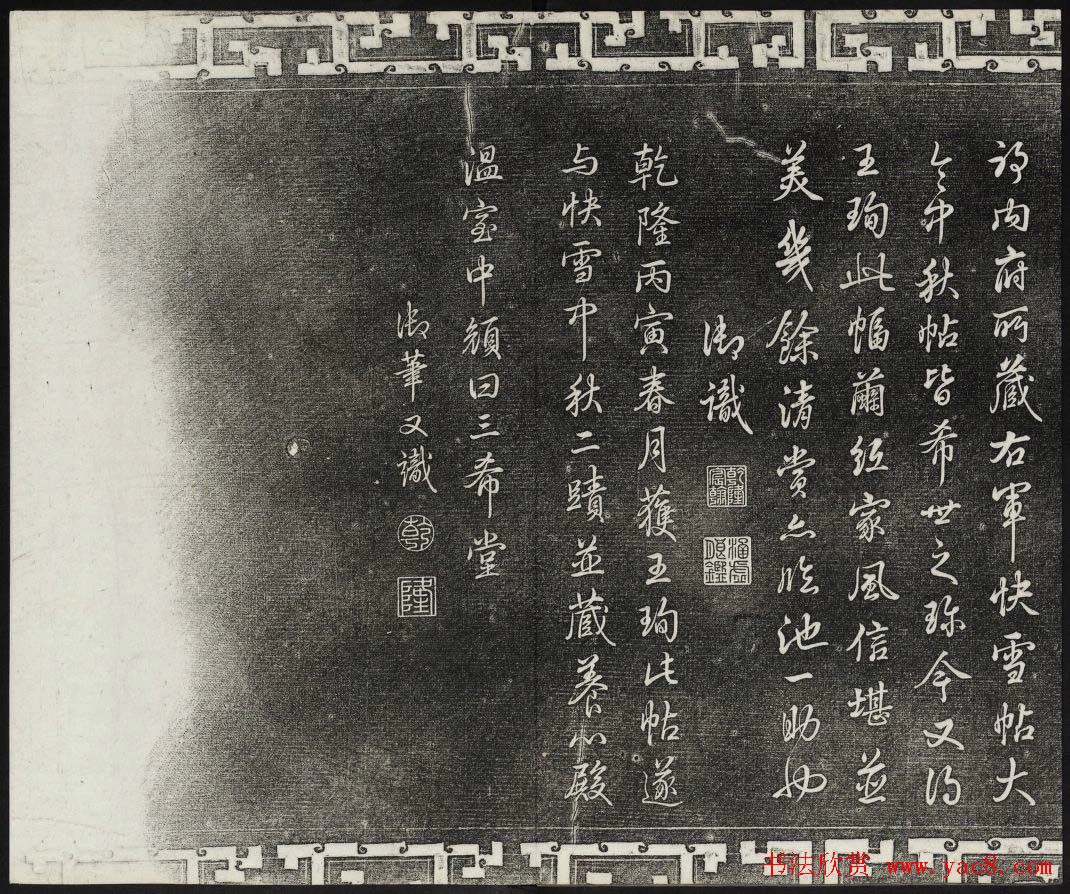 耶內府所藏右軍快雪帖大
令中秋帖皆希世之珍今又得
王珣此幅繭紙家風信堪並
美幾餘清賞亦臨池一助也
御識
乾隆宸翰
涵虛朗鑑
乾隆丙寅春月獲王珣此帖遂
与快雪中秋二蹟並藏養心殿
溫室中顏曰三希堂
御筆又識
乾
隆
书法欣赏 www.yac8.com